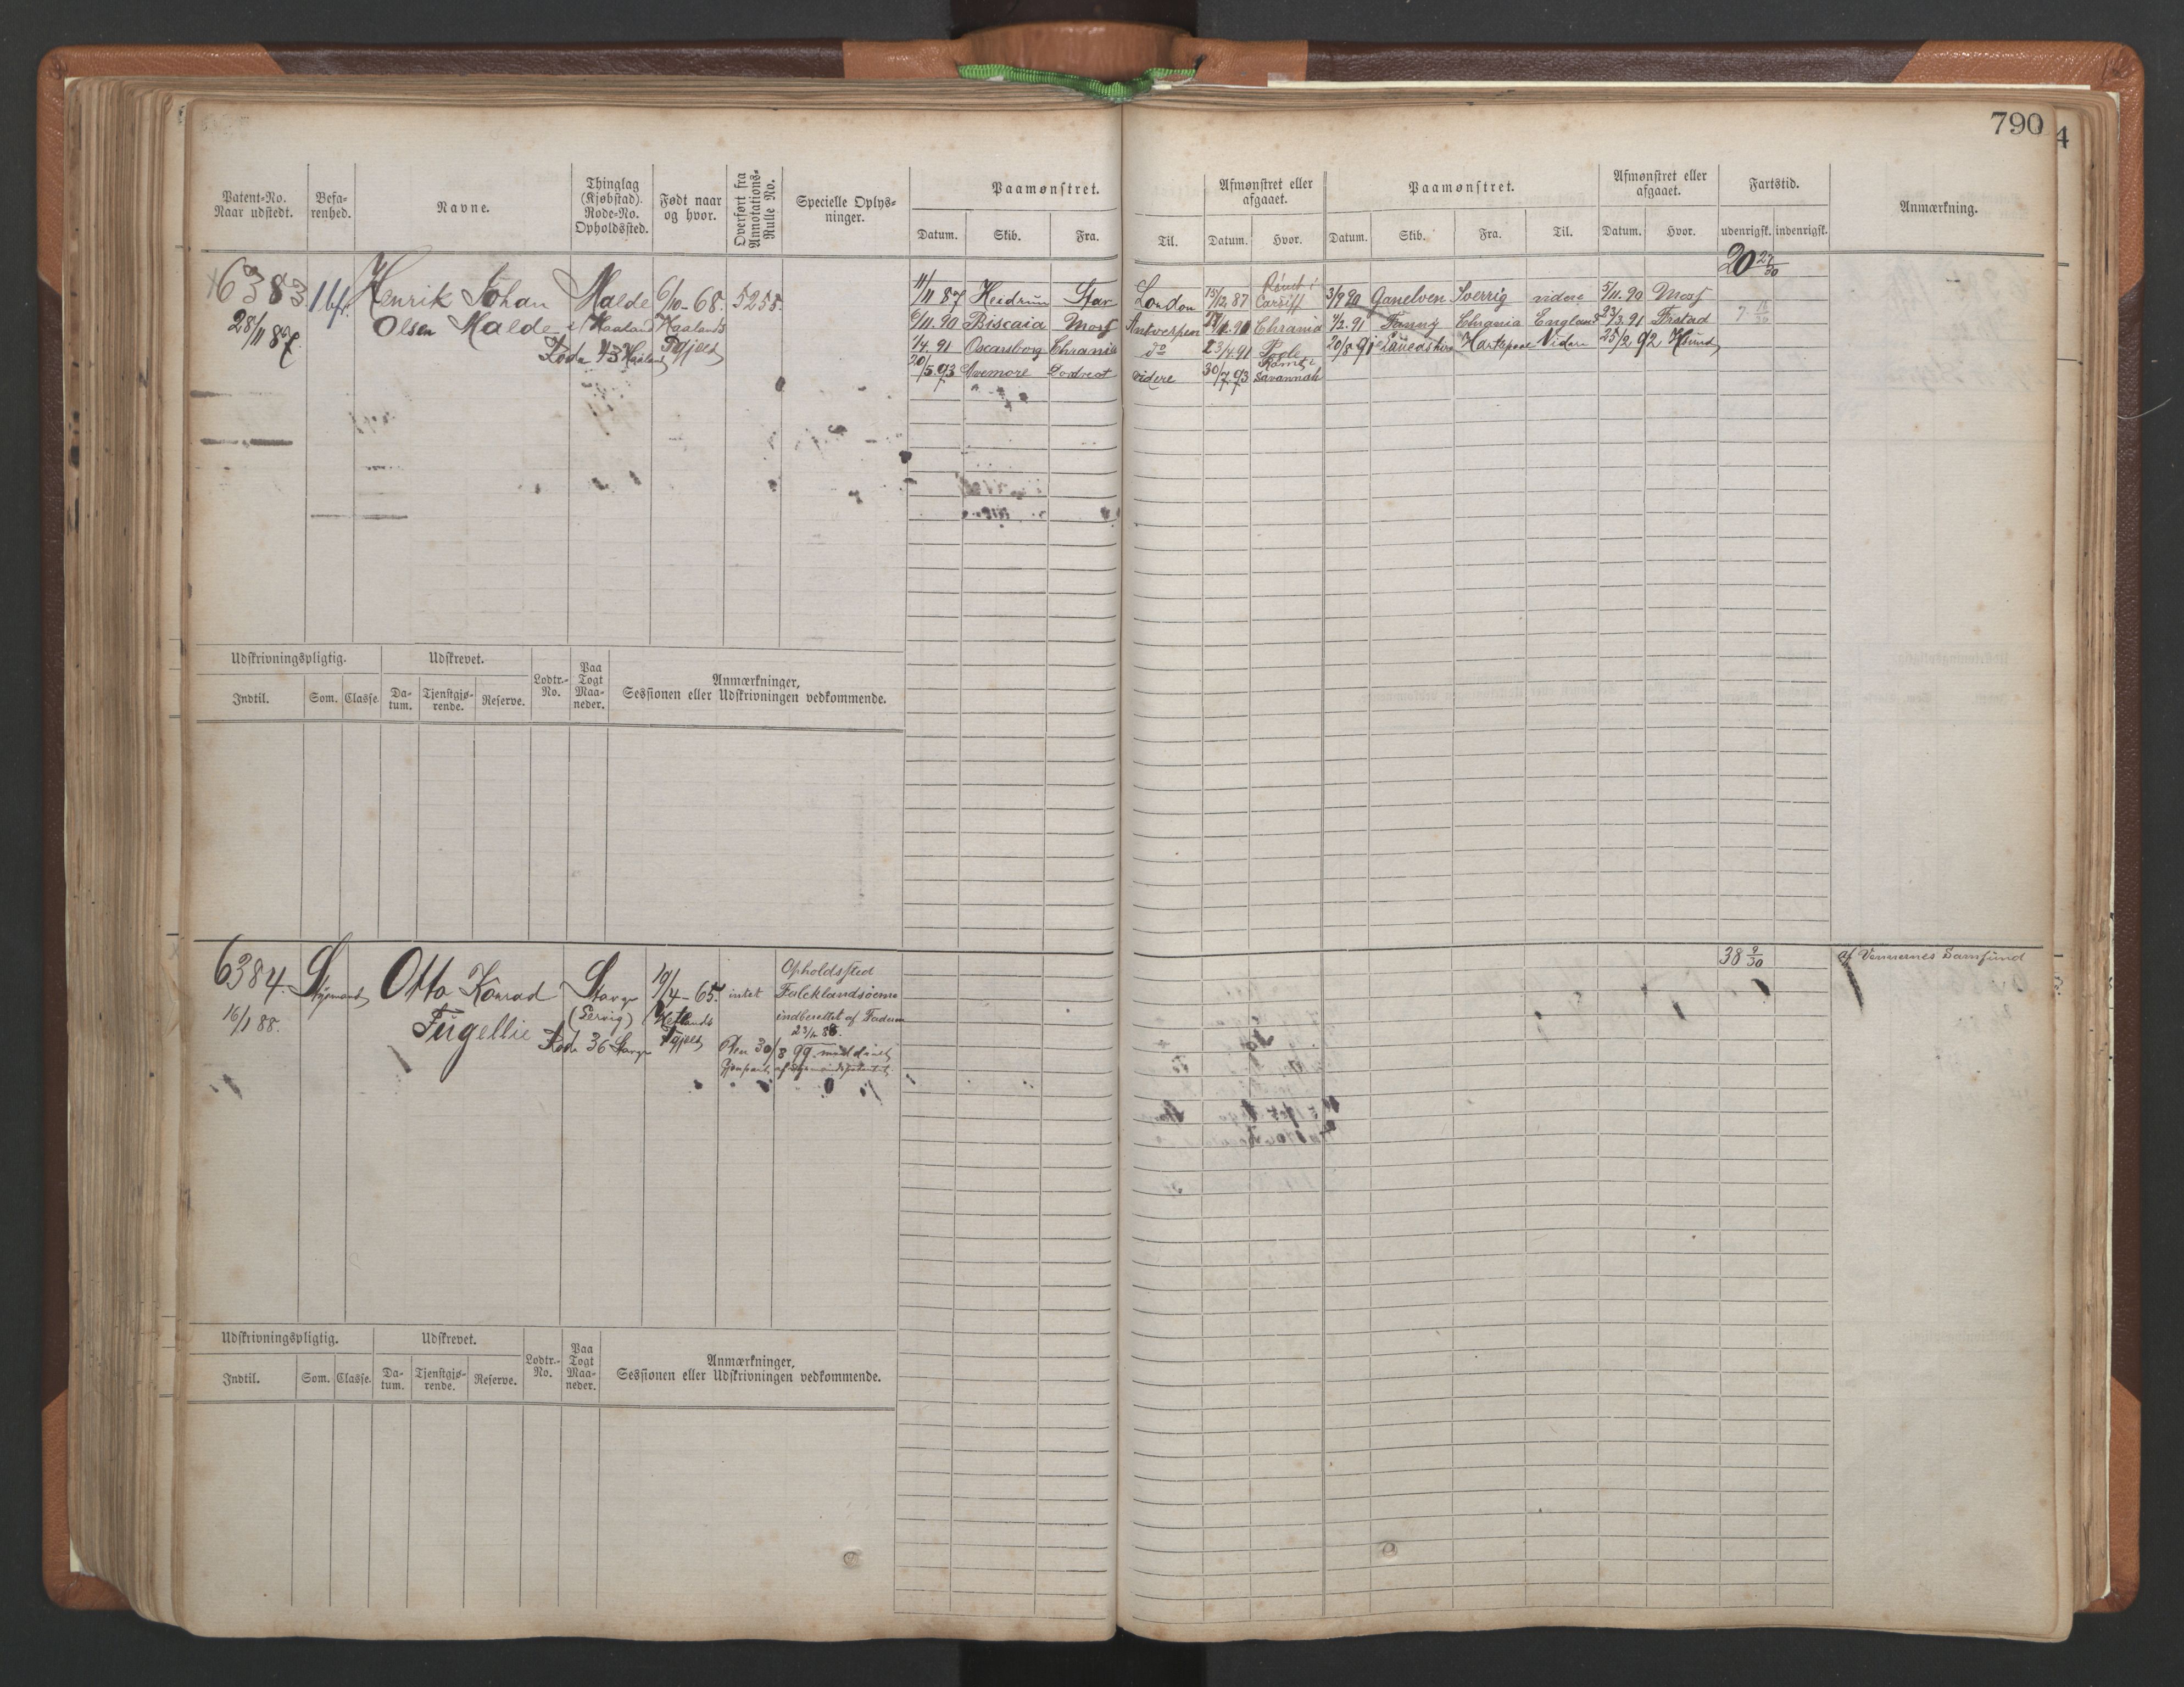 790
4
Patent-No. Naar udstedt.
Befa-renhed.
Navne.
Thinglag (Kjøbstad). Rode-No. Opholdssted.
Født naar og hvor.
Overført fra Annotations-Rulle No.
Specielle Oplys-ninger.
Paamønstret.
Datum. Skib. Fra. Til.
Afmønstret eller afgaaet.
Datum. Hvor.
Paamønstret.
Datum. Skib. Fra. Til.
Afmønstret eller afgaaet.
Datum. Hvor.
Fartstid.
udenrigsk. indenrigsk.
Anmærkning.
20 27/30
6383 Henrik Johan Malde 6/10-68. 5258.
28/11 87. Olsen Malde Haaland Haalands
Rode 43 Haaland Pgjæld
11/11 87 Heidrun Stav London 15/12 87 Rømt i Cardiff 3/9 90 Ganelven Sverrig videre 5/11.90 Moss
6/11.90 Biscaia Moss Antwerpen Chrania 3/2.91 Fanny Chrania England 23/3.91 Frstad 7
1/4.91 Oscarsborg Chrania do 23/4.91 Poole 20/8.91 Hartepool Vidre 25/2.92
20/5.93 Avemore Dordrect videre 30/7.93 Rømt i Savannah
Udskrivningspligtig.
Udskrevet.
Lodtr.-No.
Paa Togt Maa-neder.
Anmærkninger,
Sessionen eller Udskrivningen vedkommende.
Indtil. Som. Classe. Da-tum. Tjenstgjø-rende. Reserve.
6384. Styrmand Otto Konrad Stavgr 19/4-65. intet Opholdssted
16/1 88. Fugellie (Gervig) Hetlands Falcklandsøerne
Rode 36 Stavgr Pgjæld indberettet af Faderen
23/2 88.
Den 30/8 99 meddelt
Gjenpart af Styrmandspatentet
38 2/30
af Vennernes Samfund
Udskrivningspligtig.
Udskrevet.
Lodtr.-No.
Paa Togt Maa-neder.
Anmærkninger,
Sessionen eller Udskrivningen vedkommende.
Indtil. Som. Classe. Da-tum. Tjenstgjø-rende. Reserve.